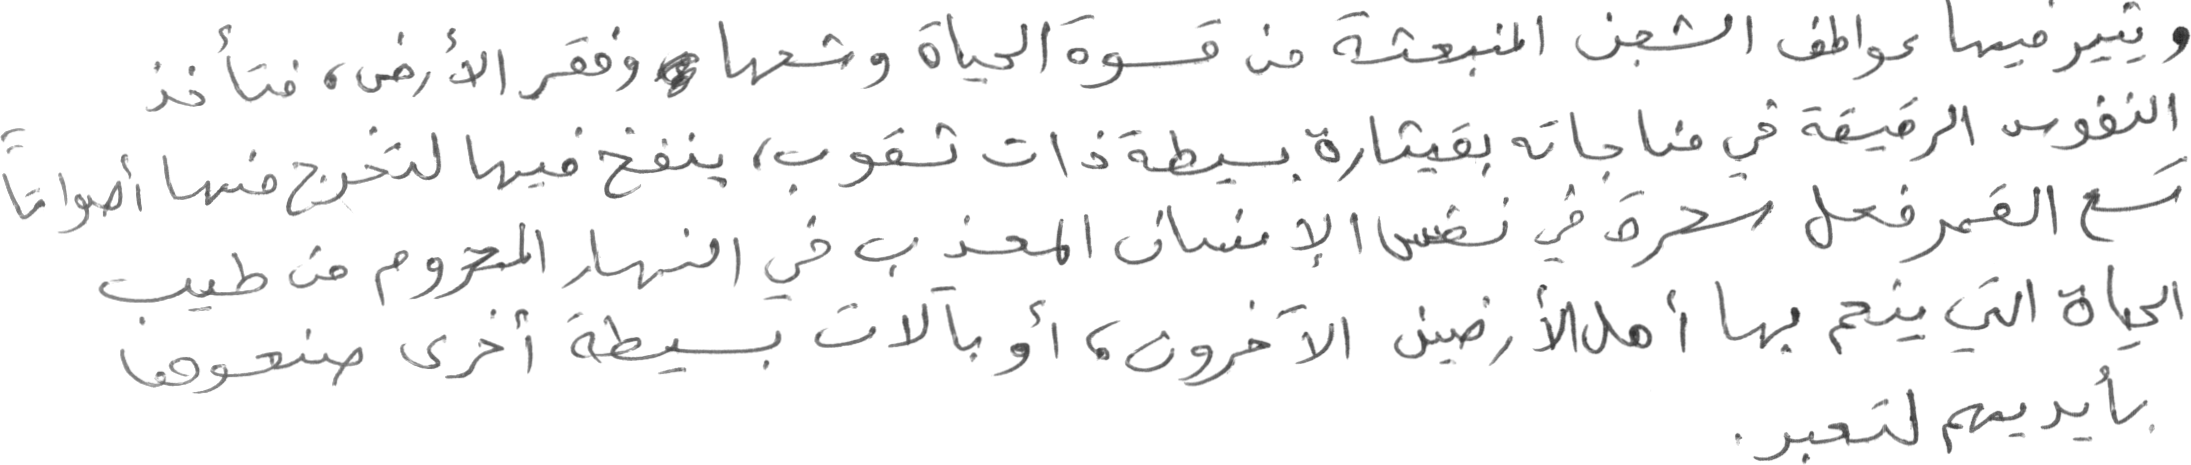 ويثير فيها عواطف الشجن المنبعثة من قسوة الحياة وشحها وفقر الأرض، فتأخذ
النفوس الرقيقة في مناجاته بقيثارة بسيطة ذات ثقوب، ينفخ فيها لتخرج منها أصواتاً
مع القمر فعل سحره في نفس الإنسان المعذب في النهار المحروم من طيب
الحياة التي ينعم بها أهل الأرضين الآخرون، أو بآلات بسيطة أخرى صنعوها
بأيديهم لتعبر.